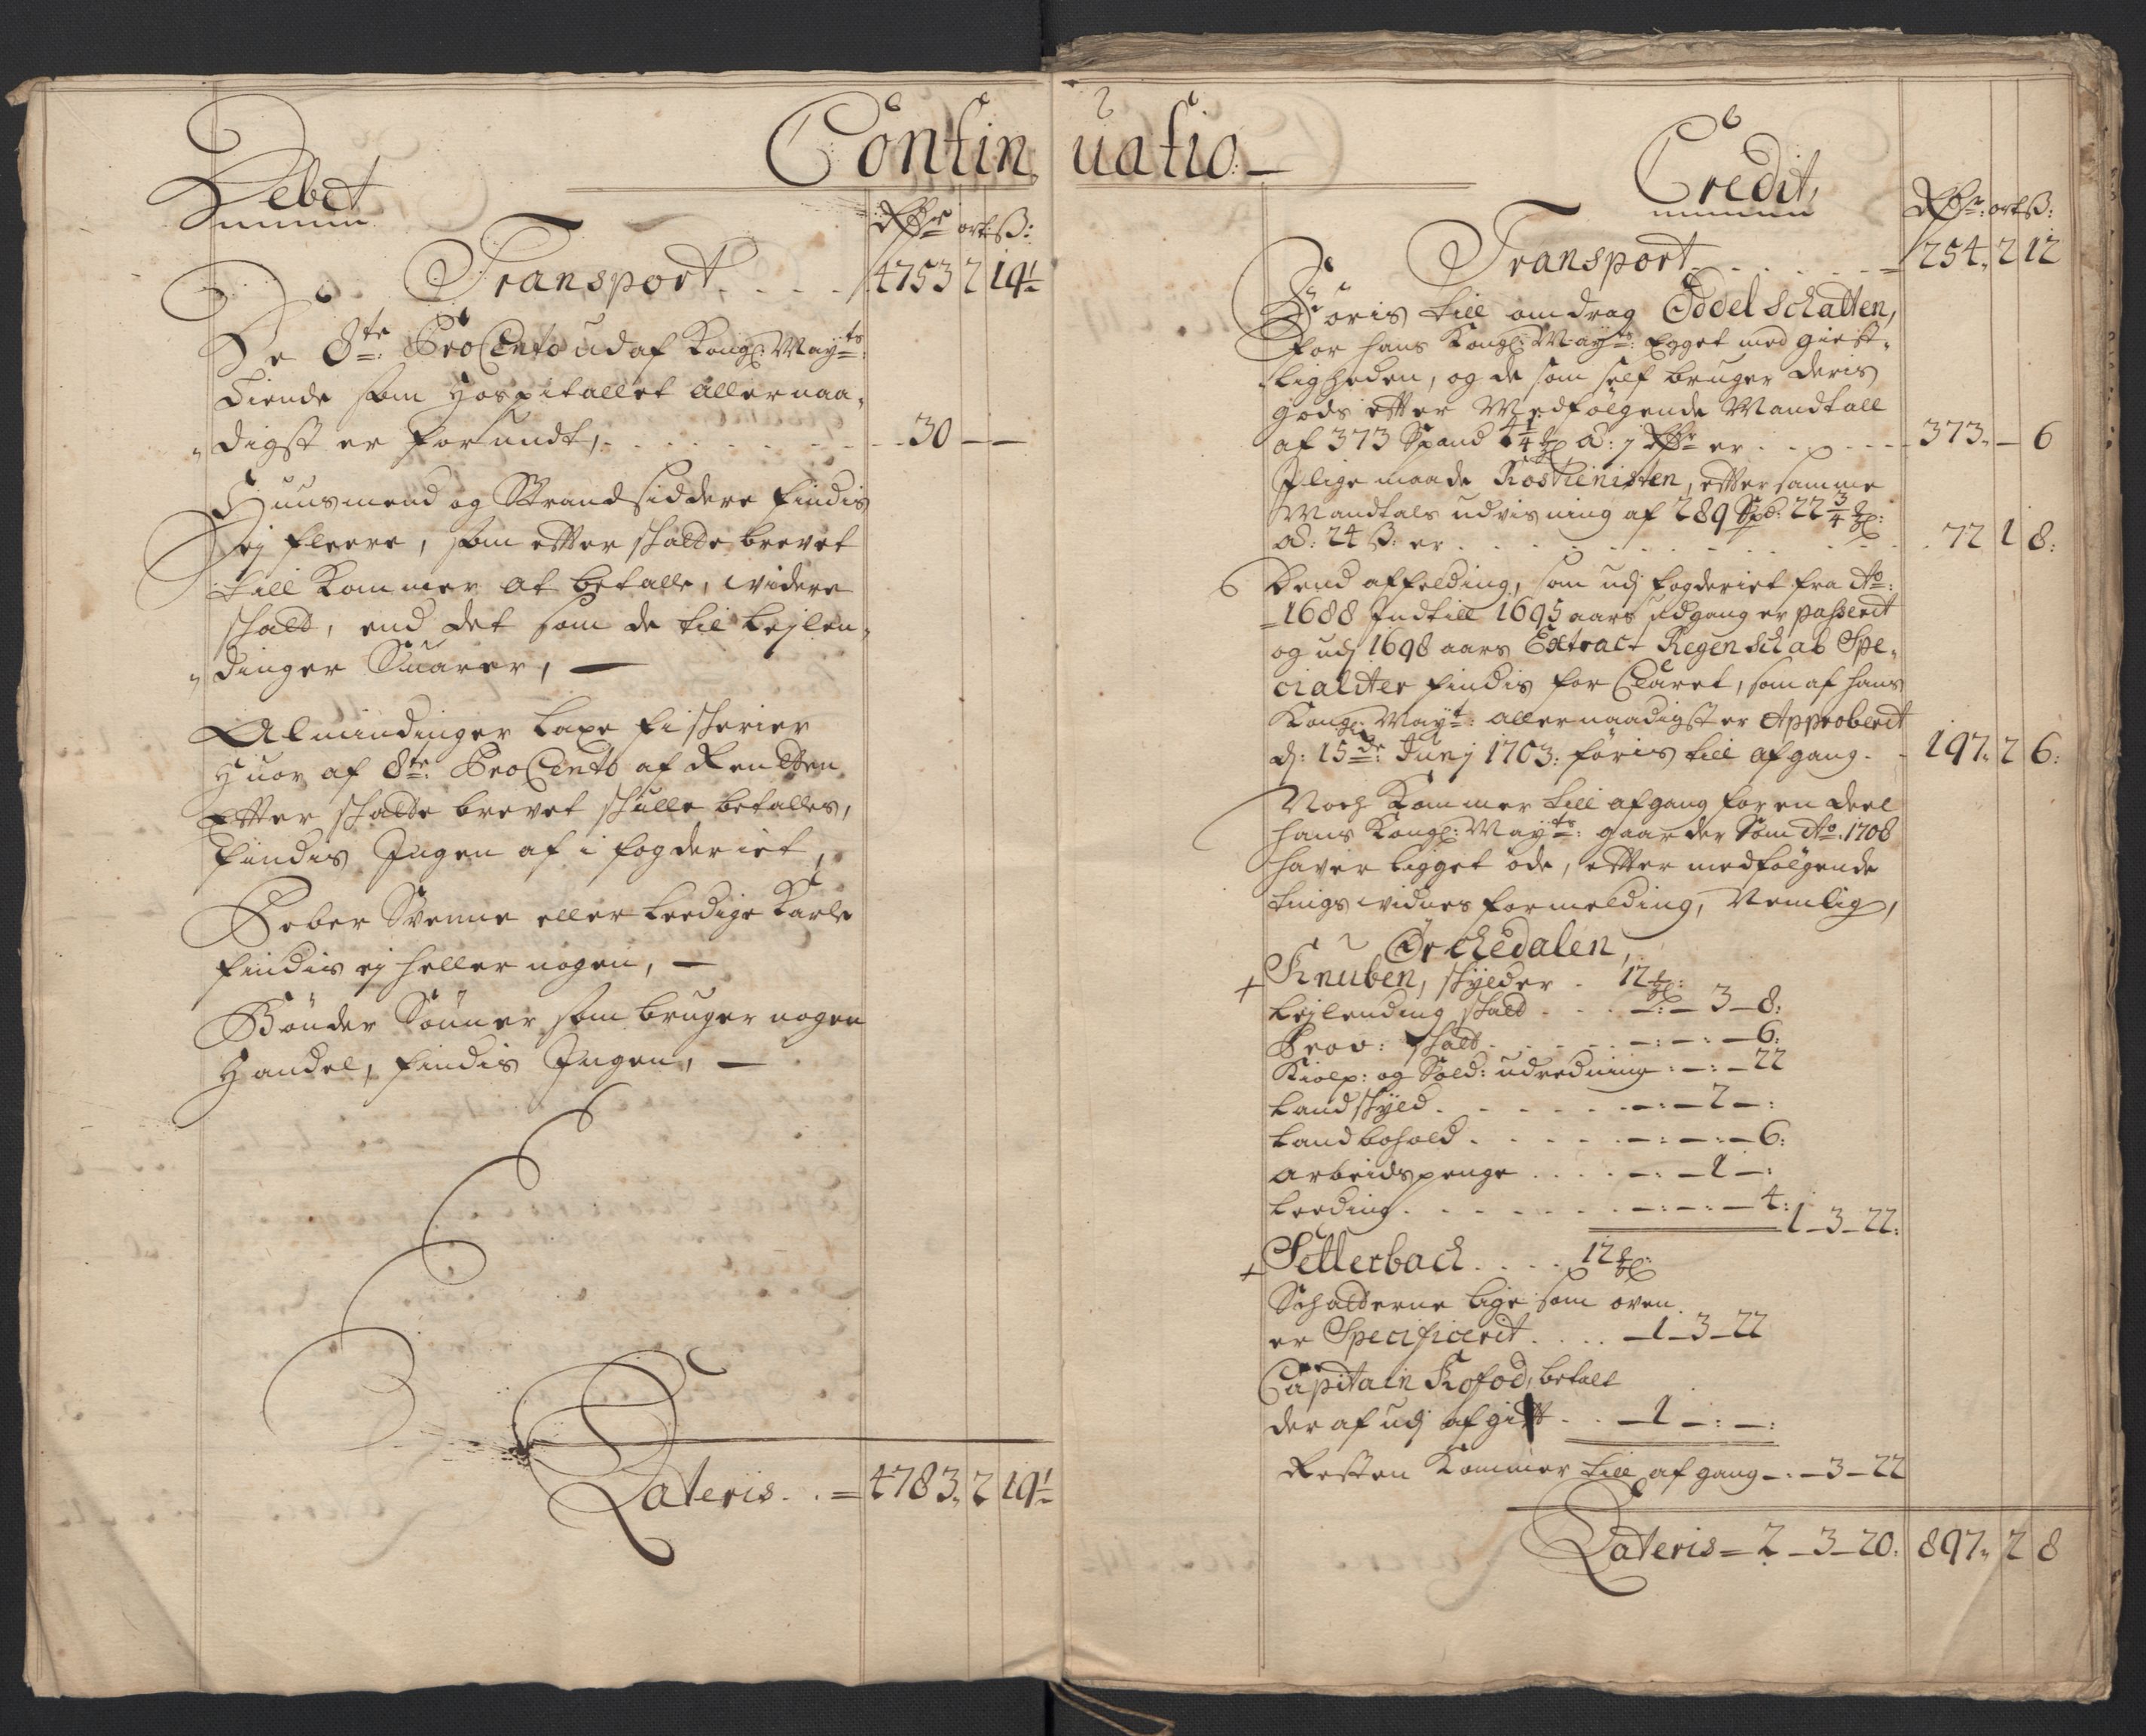 Continuatio
Debet
Rdr ort ß:
Transport 4753 2 19½
De 8te ProCento udaf Kongl: Mayts
Tiende som Hospitallet allernaa,
digst er forundt, 30 — —
Huusmend og Strandsiddere findis
Ej fleere, som efter skatte brevet
till kommer at betalle, videre
skatt, end det som de til lejlen,
dinger Suarer, —
Almindinger Laxe fiskerier
Huor af 8te: ProCento af Rendten
Efter skatte brevet skulle betalles,
findis Ingen af i fogderiet,
Peber Svenne eller Leedige Karle
findis ej heller nogen, —
Bønder Sønner som bruger nogen
Handel, findis Ingen, —
Lateris = 4783 2 19½
Credit,
Rdr: ort ß:
Transport = 254 2 12
Føris till omdrag Oddelschatten,
for hans Kongl: Mayts: Egget med giest,
ligheden, og de som self bruger deris
gods efter Medfølgende Mandtall
af 373 Spand 4¼ mkl a: 1 Rdr er 373 — 6
Iligemaade Rostienisten, efter samme
Mandtals udvisning af 289 Spd: 22¾ mkl:
a: 24 ß: er 72 1 8:
Dend affelding, som udj fogderiet fra Ao:
1688 Indtill 1695 aars udgang er passerit
og udj 1698 aars Extract Regenschab Spe,
cialiter findis for Claret, som af hans
Kongl: Mayt: allernaadigst er Approberit
d: 15de: Junj 1703: føris till afgang. 197 2 6:
Noch kommer till afgang for en deel
hans Kongl: Mayts: gaarder Som Ao: 1708
haver ligget øde, efter medfølgende
tings vidnes formelding, Nemlig,
Orchedalen,
+ Knuben, skylder 12 mkl:
Lejlending skatt — 3 — 8:
Prov: skatt — : — : — 6:
Kiolp: og Sold: udredning : — : — 22
Landskyld — : — 2 — :
Landbohold — : — : — 6:
Arbeidspenge — : — 1 — :
Leeding — : — : — 4: 1 — 3 — 22:
+ Sellerbach 12 mkl:
Schatterne lige som oven
er Specificerit — 1 — 3 — 22
Capitain Kofod, betalt
der af udj afgift — 1 — : — :
Resten kommer till afgang — : — 3 — 22
Lateris = 2 — 3 — 20: 897 2 8